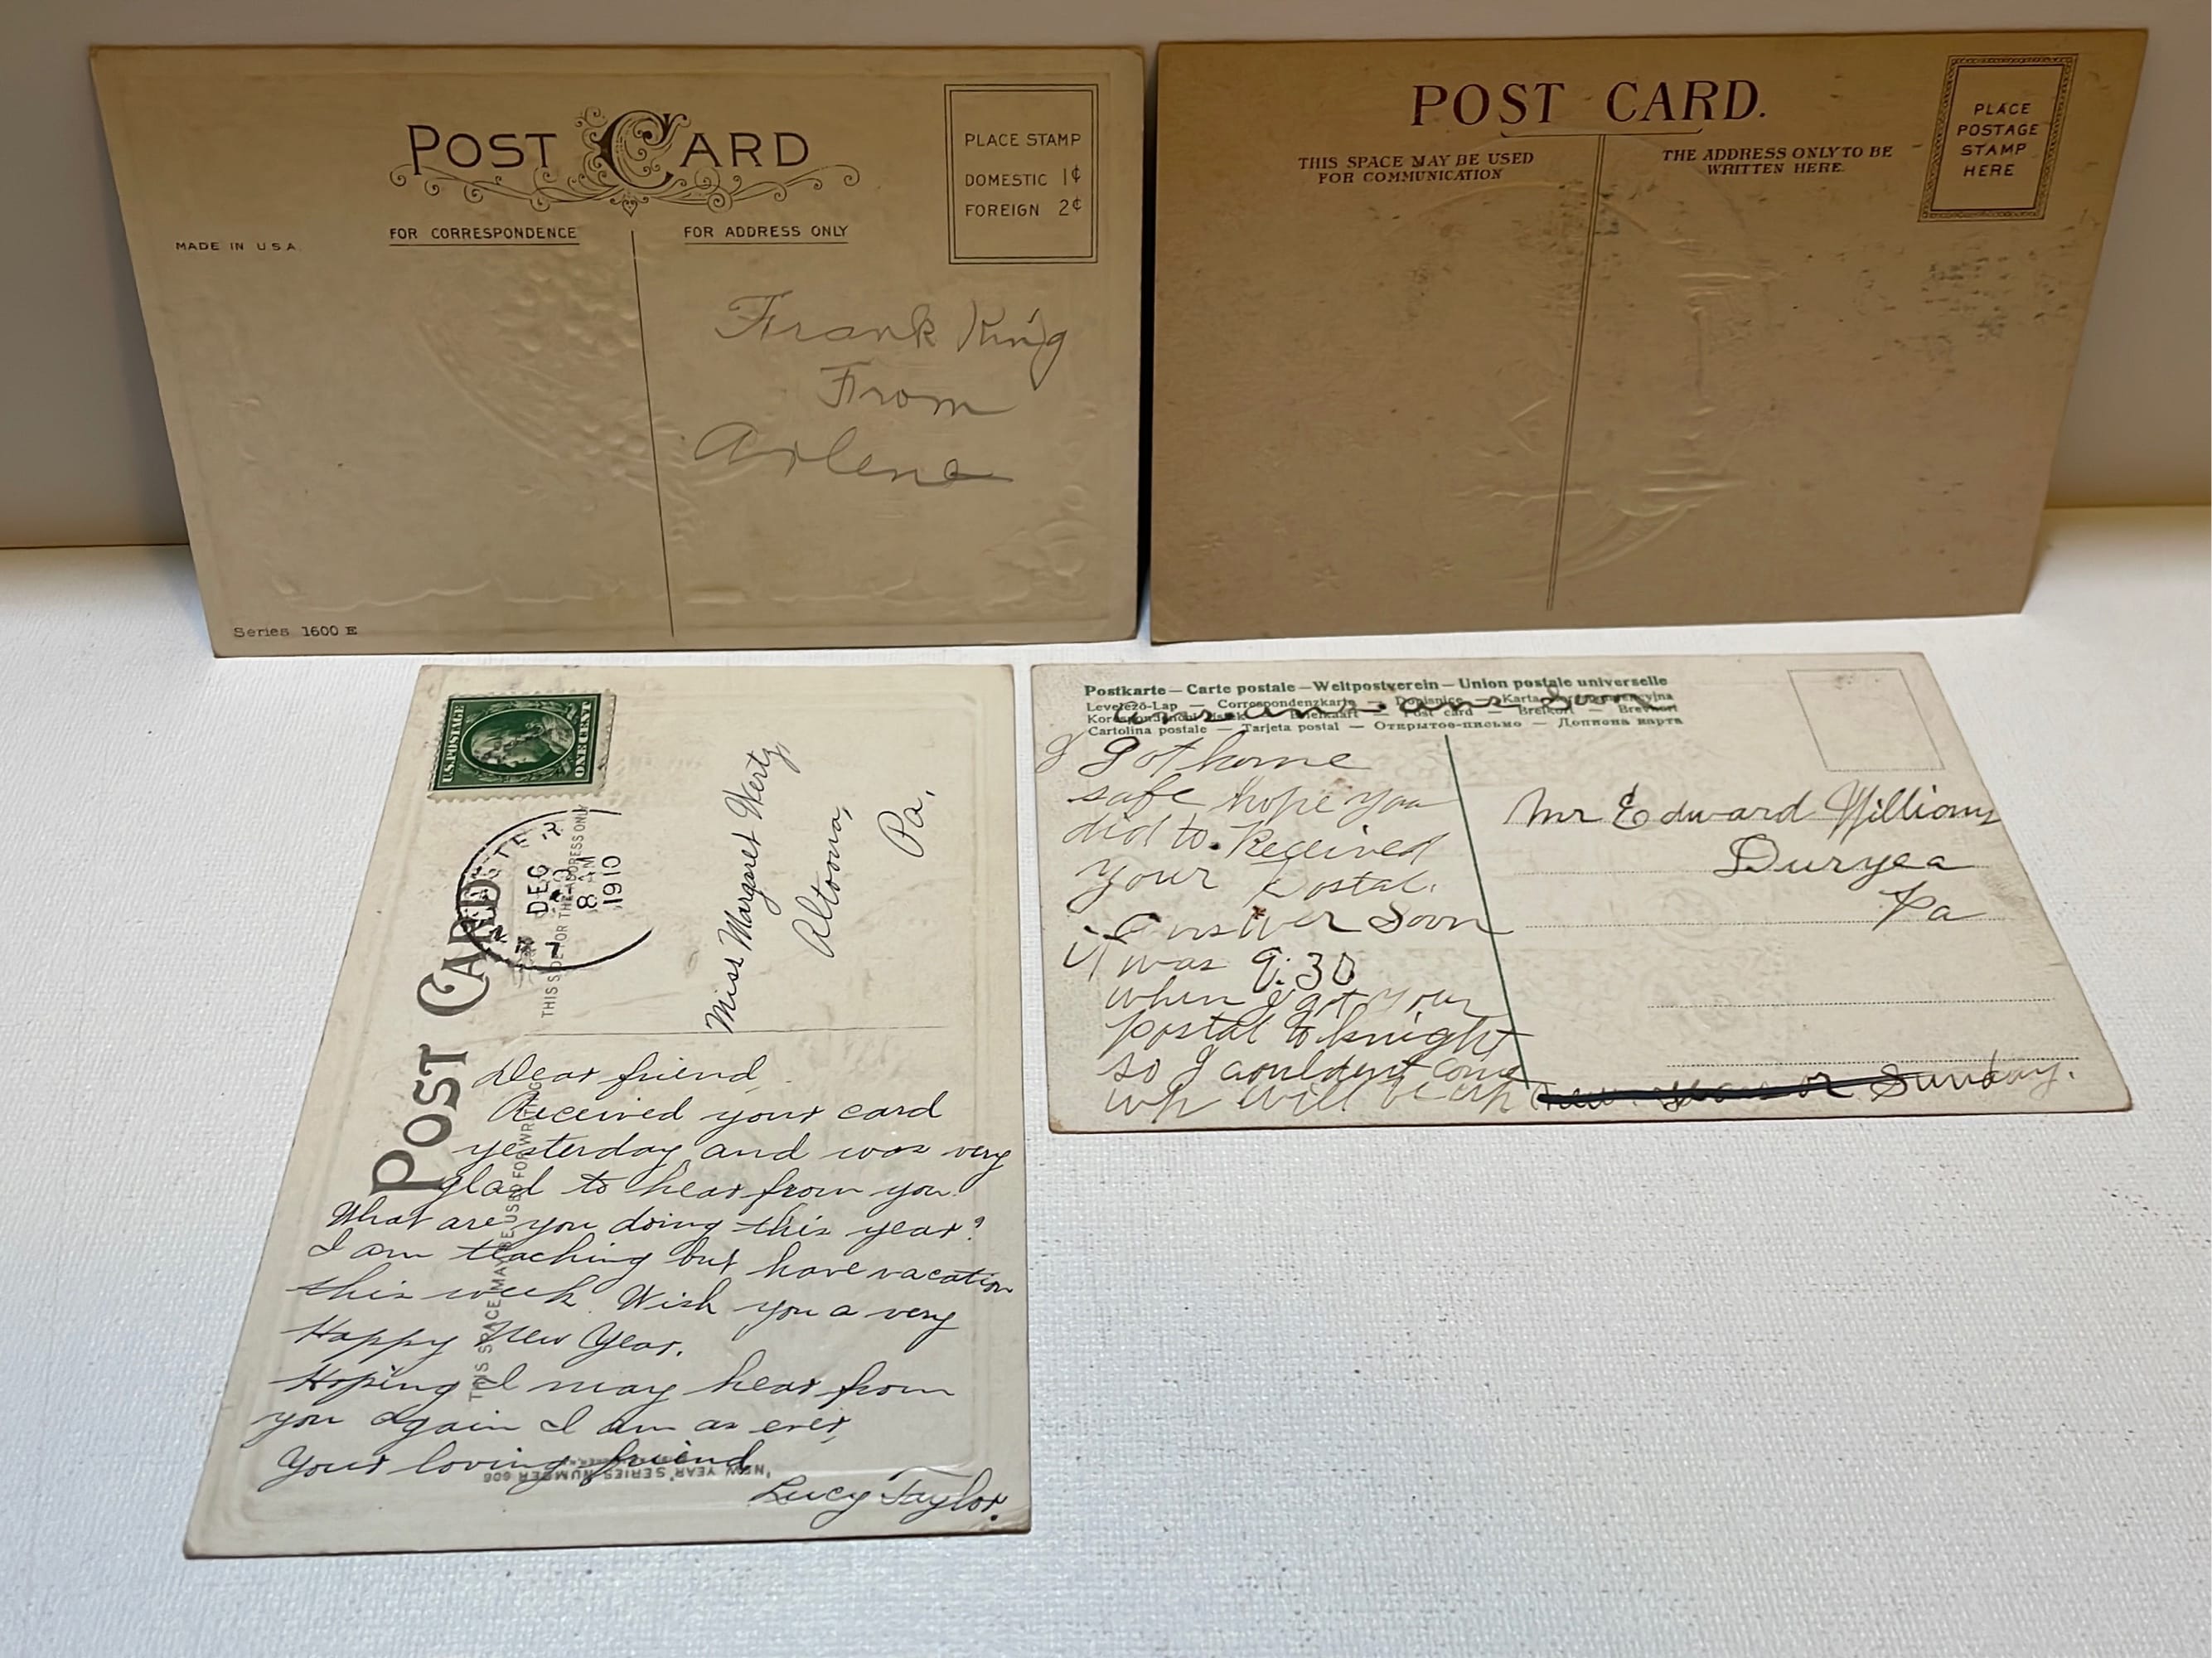 POST CARD
PLACE STAMP
DOMESTIC 1¢
FOREIGN 2¢
FOR CORRESPONDENCE
FOR ADDRESS ONLY
MADE IN U.S.A.
Frank King
From
Arlene
Series 1600 E
POST CARD.
THIS SPACE MAY BE USED
FOR COMMUNICATION
THE ADDRESS ONLY TO BE
WRITTEN HERE.
PLACE
POSTAGE
STAMP
HERE
U.S. POSTAGE
ONE CENT
DEC
8 AM
1910
POST CARD
THIS SIDE FOR THE ADDRESS ONLY
THIS SPACE MAY BE USED FOR WRITING
Miss Margaret Wertz,
Altoona,
Pa.
Dear friend
Received your card
yesterday and was very
glad to hear from you.
What are you doing this year?
I am teaching but have vacation
this week. Wish you a very
Happy New Year.
Hoping I may hear from
you again I am as ever,
Your loving friend
"NEW YEAR" SERIES NUMBER 606
Lucy Taylor.
Postkarte — Carte postale — Weltpostverein — Union postale universelle
Levelező-Lap — Correspondenzkarte — Dopisnice — Karta
Briefkaart — Post card — Brefkort — Brevkort
Cartolina postale — Tarjeta postal — Открытое-письмо — Допиона карта
Soon
I got home
safe hope you
did to. Received
your Postal.
Answer Soon
it was 9:30
when I got your
postal to knight
so I couldent come
up will be up new years or Sunday.
Mr Edward Williams
Duryea
Pa